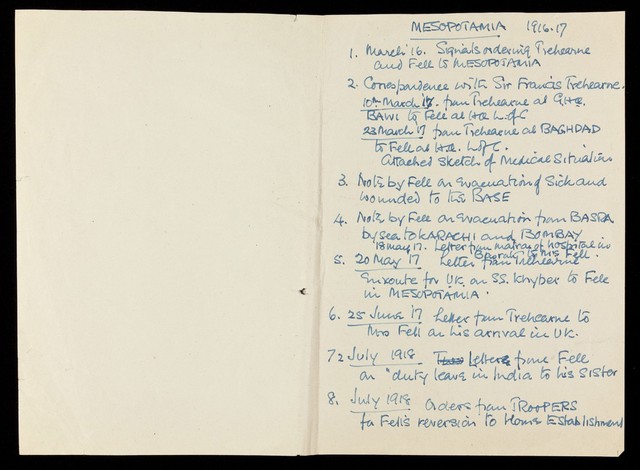 MESOPOTAMIA 1916.17
1. March '16. Signals ordering Trehearne
and Fell to MESOPOTAMIA
2. Correspondence with Sir Francis Trehearne.
10th March '17. from Trehearne at GHQ.
BAWI to Fell at HQ L of C
23 March 17 from Trehearne at BAGHDAD
to Fell at HQ. L of C.
Attached sketch of Medical Situation
3. Note by Fell on evacuation of Sick and
wounded to the BASE
4. Note by Fell on evacuation from BASRA
by sea to KARACHI and BOMBAY
18 May 17. Letter from matron of hospital in
to Mrs Fell.
5. 20 May 17 Letter from Trehearne
enroute for UK on SS. Khyber to Fell
in MESOPOTAMIA.
6. 25 June 17 Letter from Trehearne to
Mrs Fell on his arrival in UK.
7 2 July 1918 Letters from Fell
on "duty leave in India to his Sister
8. July 1918 Orders from TROOPERS
for Fell's reversion to Home Establishment